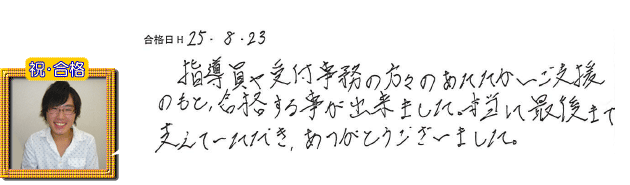 合格日 H 25・8・23
祝・合格
指導員や受付事務の方々のあたたかいご支援
のもと、合格する事が出来ました。本当に最後まで
支えていただき、ありがとうございました。